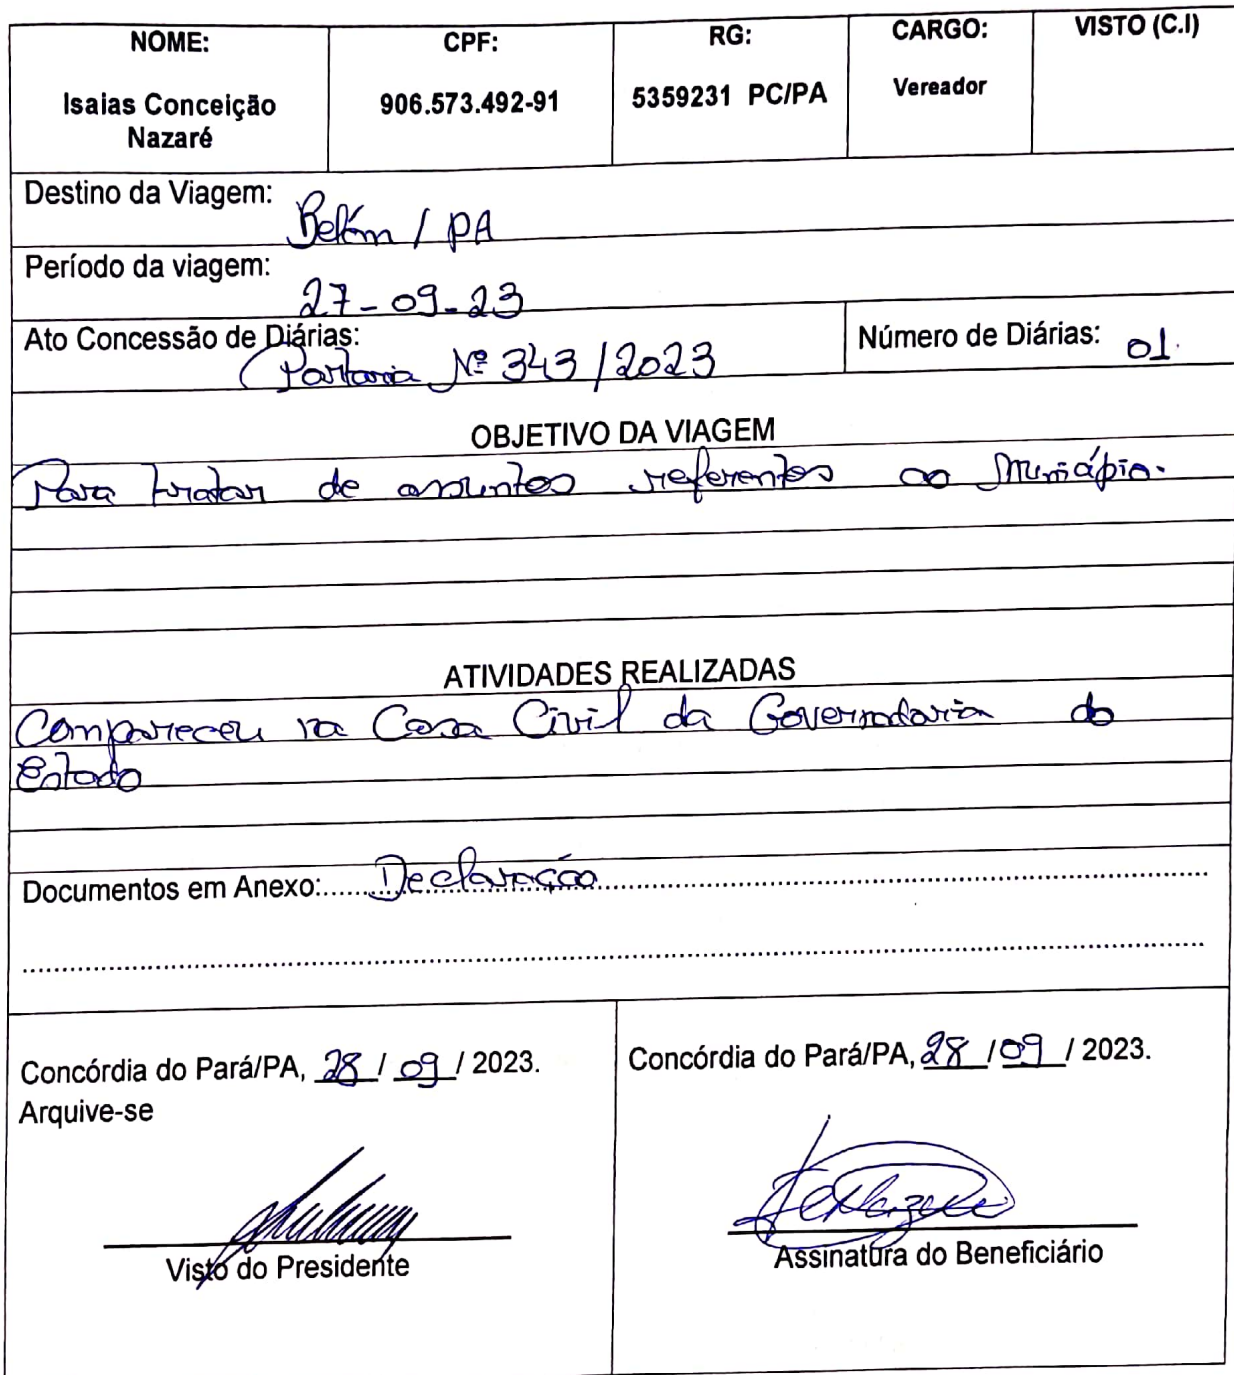 NOME: CPF: RG: CARGO: VISTO (C.I)
Isaias Conceição 906.573.492-91 5359231 PC/PA Vereador
Nazaré
Destino da Viagem: Belém / PA
Período da viagem: 27-09-23
Ato Concessão de Diárias: Portaria Nº 343/2023 Número de Diárias: 01.
OBJETIVO DA VIAGEM
Para tratar de assuntos referentes ao Município.
ATIVIDADES REALIZADAS
Compareceu na Casa Civil da Governadoria do
Estado
Documentos em Anexo: Declaração
Concórdia do Pará/PA, 28 / 09 / 2023.
Arquive-se
Visto do Presidente
Concórdia do Pará/PA, 28 / 09 / 2023.
Assinatura do Beneficiário